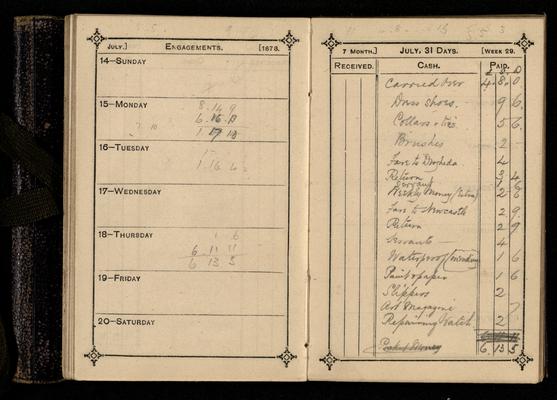 JULY.] ENGAGEMENTS. [1878.
14—SUNDAY
15—MONDAY
8. 14 9
6. 16. 8
16—TUESDAY
1. 16
17—WEDNESDAY
18—THURSDAY
1 6
6. 11 11
6 13 5
19—FRIDAY
20—SATURDAY
7 MONTH.] JULY, 31 DAYS. [WEEK 29.
RECEIVED. CASH. PAID.
£ S. D
Carried Over 4. 8. 0
Dress Shoes. 9 6
Collars & ties 5 6
Brushes 2
Fare to Drogheda. 4
Return 3 4
Servant 1
Weekly Money (extra) 2 6
Fare to Newcastle 2 9
Return 2 9
Servants 4
Waterproof (mending) 1 6
Paint & paper 1 6
Slippers 2
Art Magazine 7
Repairing Watch 2
Pocket Money 6. 13 5